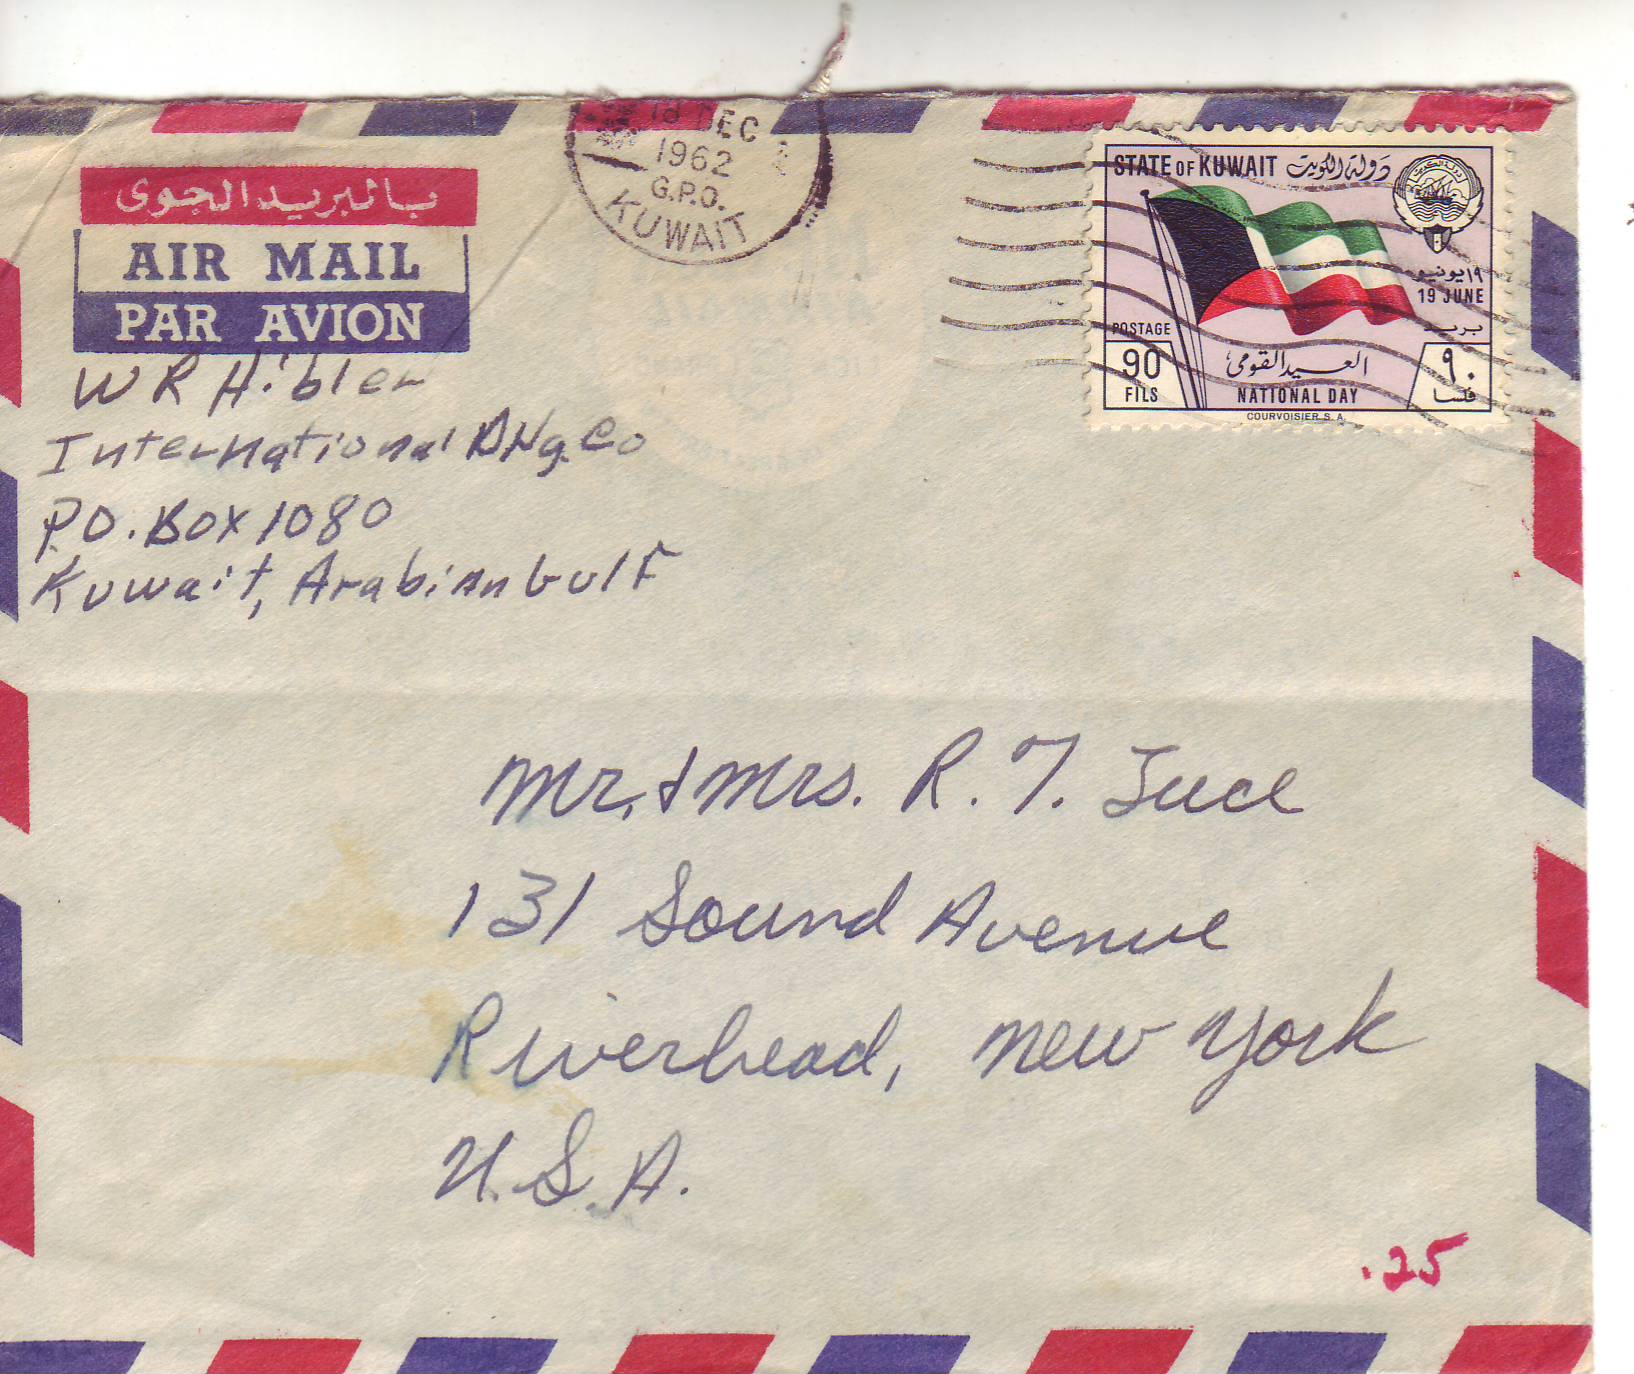 18 DEC
1962
G.P.O.
KUWAIT
بالبريد الجوى
AIR MAIL
PAR AVION
STATE OF KUWAIT دولة الكويت
١٩ يونيو
19 JUNE
POSTAGE بريد
90 FILS
العيد القومى
NATIONAL DAY
٩٠ فلسا
COURVOISIER S.A.
W R Hibler
International
P.O. Box 1080
Kuwait, Arabian Gulf
Mr. & Mrs. R. T.
131 Sound Avenue
Riverhead, New York
U.S.A.
.25